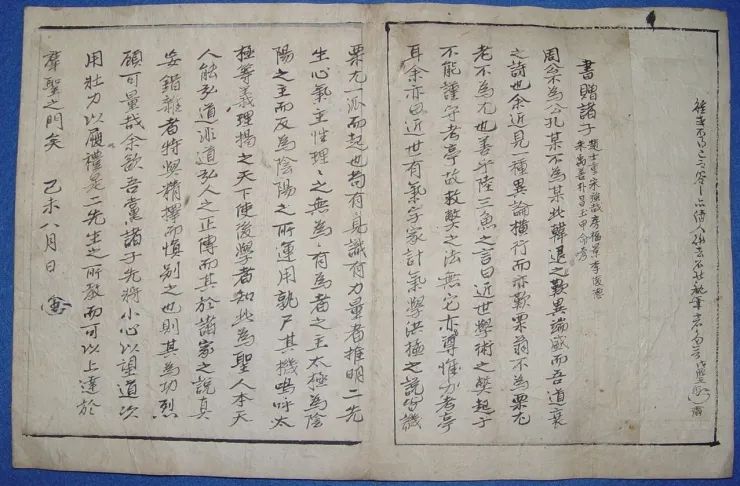 書贈諸子
周公不為公孔某不為某此韓退之歎異端盛而吾道衰
之詩也余近見一種異論橫行而亦歎栗翁不為栗尤
老不為尤也善乎陸三魚之言曰近世學術之弊起于
不能謹守考亭故救弊之法無它亦尊惟力考亭
耳余亦曰近世有氣字家計氣學決極之說皆譏
栗尤一派而起也苟有見識有力量者推明二先
生心氣主性理〻之無為〻有為者之主太極為陰
陽之主而反為陰陽之所運用孰尸其機嗚呼太
極等義理揚之天下使後學者知此為聖人本天
人能弘道非道弘人之正傳而其於諸家之說真
妄錯雜者將與精擇而慎別之也則其為功烈
顧可量哉余欲吾黨諸子先將小心以望道次
用壯力以履禮是二先生之所敎而可以上達於
羣聖之門矣 己未八月日